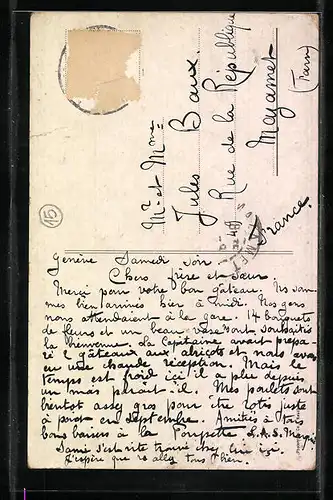 Mr et Mme
Jules Baux
Rue de la République
Mazamet
(Tarn)
France
15
Genève Samedi soir
Chers frère et Sœur
Merci pour votre bon gâteau. Ns som-
mes bien arrivés hier à midi. Nos gens
nous attendaient à la gare. 14 bouquets
de fleurs et un beau dessert ont souhaité
la bienvenue. La Capitaine avait prépa-
ré 2 gâteaux aux abricots et nous avons
eu une chaude réception. Mais le
temps est froid ici il a plu depuis
un mois parait-il. Mes poulets sont
bientôt assez gros pour être rotis juste
à point en septembre. Amitiés à tous
bons baisers à la Poupette
Samé s'est vite trouvé chez lui ici.
J'espère que vs allez tous bien.